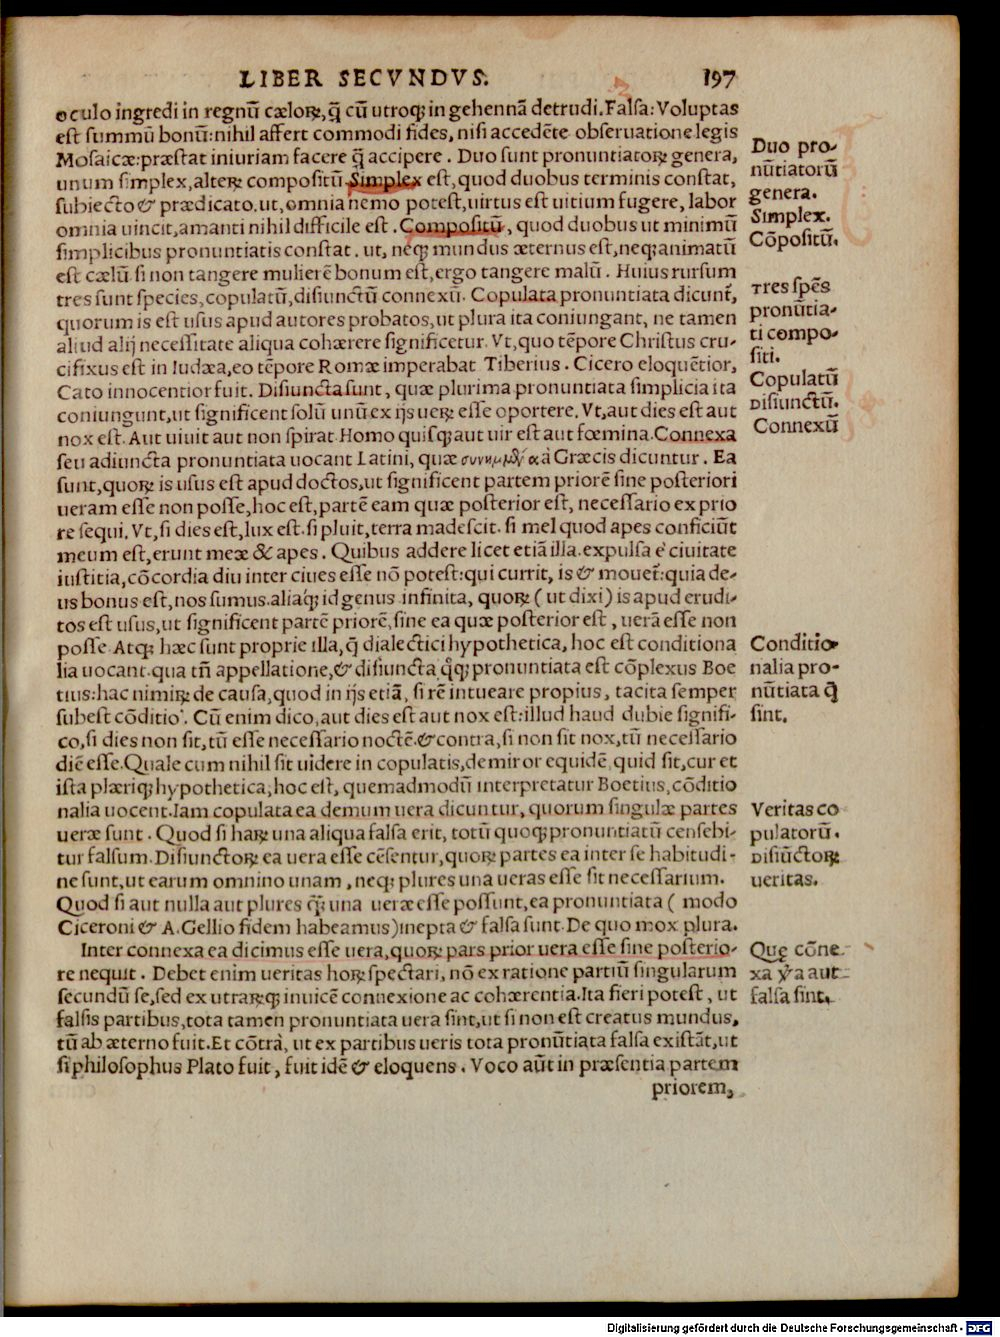 LIBER SECVNDVS. 197
oculo ingredi in regnū cælorꝝ, q̃ cū utroqꝫ in gehennā detrudi. Falsa: Voluptas
est summū bonū: nihil affert commodi fides, nisi accedēte obseruatione legis
Mosaicæ: præstat iniuriam facere q̃ accipere. Duo sunt pronuntiatorꝝ genera,
unum simplex, alterꝝ compositū. Simplex est, quod duobus terminis constat,
subiecto & prædicato. ut, omnia nemo potest, uirtus est uitium fugere, labor
omnia uincit, amanti nihil difficile est. Compositū, quod duobus ut minimū
simplicibus pronuntiatis constat. ut, neqꝫ mundus æternus est, neqꝫ animatū
est cælū. si non tangere mulierē bonum est, ergo tangere malū. Huius rursum
tres sunt species, copulatū, disiunctū connexū. Copulata pronuntiata dicunt̃,
quorum is est usus apud autores probatos, ut plura ita coniungant, ne tamen
aliud alij necessitate aliqua cohærere significetur. Vt, quo tēpore Christus cru-
cifixus est in Iudæa, eo tēpore Romæ imperabat Tiberius. Cicero eloquētior,
Cato innocentior fuit. Disiuncta sunt, quæ plurima pronuntiata simplicia ita
coniungunt, ut significent solū unū ex ijs uerꝝ esse oportere. Vt, aut dies est aut
nox est. Aut uiuit aut non spirat. Homo quisqꝫ aut uir est aut fœmina. Connexa
seu adiuncta pronuntiata uocant Latini, quæ à Græcis dicuntur. Ea
sunt, quorꝝ is usus est apud doctos, ut significent partem priorē sine posteriori
ueram esse non posse, hoc est, partē eam quæ posterior est, necessario ex prio
re sequi. Vt, si dies est, lux est. si pluit, terra madescit. si mel quod apes conficiūt
meum est, erunt meæ & apes. Quibus addere licet etiā illa. expulsa è ciuitate
iustitia, cōcordia diu inter ciues esse nō potest: qui currit, is & mouet̃: quia de-
us bonus est, nos sumus. aliaqꝫ id genus infinita, quorꝝ (ut dixi) is apud erudi-
tos est usus, ut significent partē priorē, sine ea quæ posterior est, uerā esse non
posse. Atqꝫ hæc sunt proprie illa, q̃ dialectici hypothetica, hoc est conditiona
lia uocant. qua tñ appellatione, & disiuncta q̊qꝫ pronuntiata est cōplexus Boe
tius: hac nimirꝝ de causa, quod in ijs etiā, si rē intueare propius, tacita semper
subest cōditio. Cū enim dico, aut dies est aut nox est: illud haud dubie signifi-
co, si dies non sit, tū esse necessario noctē. & contra, si non sit nox, tū necessario
diē esse. Quale cum nihil sit uidere in copulatis, demiror equidē, quid sit, cur et
ista plæriqꝫ hypothetica, hoc est, quemadmodū interpretatur Boetius, cōditio
nalia uocent. Iam copulata ea demum uera dicuntur, quorum singulæ partes
ueræ sunt. Quod si harꝝ una aliqua falsa erit, totū quoqꝫ pronuntiatū censebi-
tur falsum. Disiunctorꝝ ea uera esse cēsentur, quorꝝ partes ea inter se habitudi-
ne sunt, ut earum omnino unam, neqꝫ plures una ueras esse sit necessarium.
Quod si aut nulla aut plures q̃ una ueræ esse possunt, ea pronuntiata (modo
Ciceroni & A. Gellio fidem habeamus) inepta & falsa sunt. De quo mox plura.
Inter connexa ea dicimus esse uera, quorꝝ pars prior uera esse sine posterio-
re nequit. Debet enim ueritas horꝝ spectari, nō ex ratione partiū singularum
secundū se, sed ex utrarꝝqꝫ inuicē connexione ac cohærentia. Ita fieri potest, ut
falsis partibus, tota tamen pronuntiata uera sint, ut si non est creatus mundus,
tū ab æterno fuit. Et cōtrà, ut ex partibus ueris tota pronūtiata falsa existāt, ut
si philosophus Plato fuit, fuit idē & eloquens. Voco aūt in præsentia partem
priorem,
Duo pro-
nūtiatorū
genera.
Simplex.
Cōpositū.
Tres spēs
pronūtia-
ti compo-
siti.
Copulatū
Disiunctū.
Connexū
Conditio-
nalia pro-
nūtiata q̃
sint.
Veritas co
pulatorū.
Disiūctorꝝ
ueritas.
Quę cōne-
xa ꝟa aut
falsa sint.
Digitalisierung gefördert durch die Deutsche Forschungsgemeinschaft - DFG